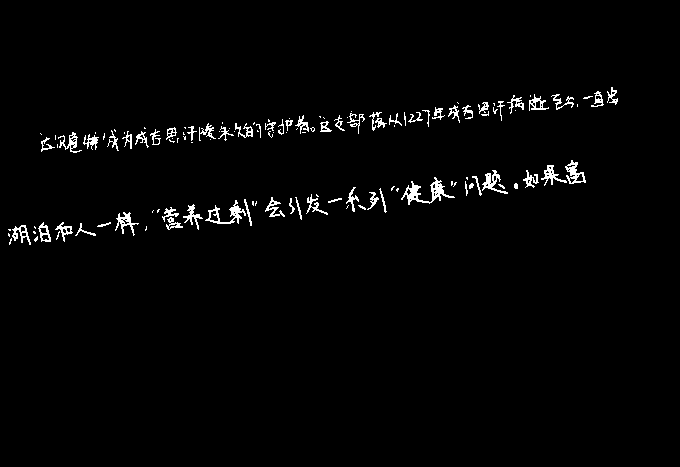 达尔扈特成为成吉思汗陵永久的守护者。这支部落从1227年成吉思汗病逝至今,一直出
湖泊和人一样,"营养过剩"会引发一系列"健康"问题。如果富